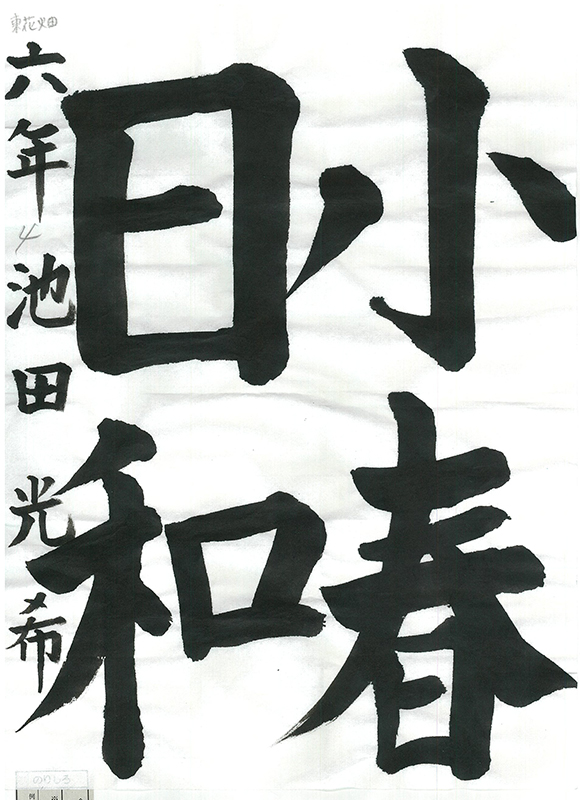 小春
日和
東花畑
六年 池田光希
4
のりしろ